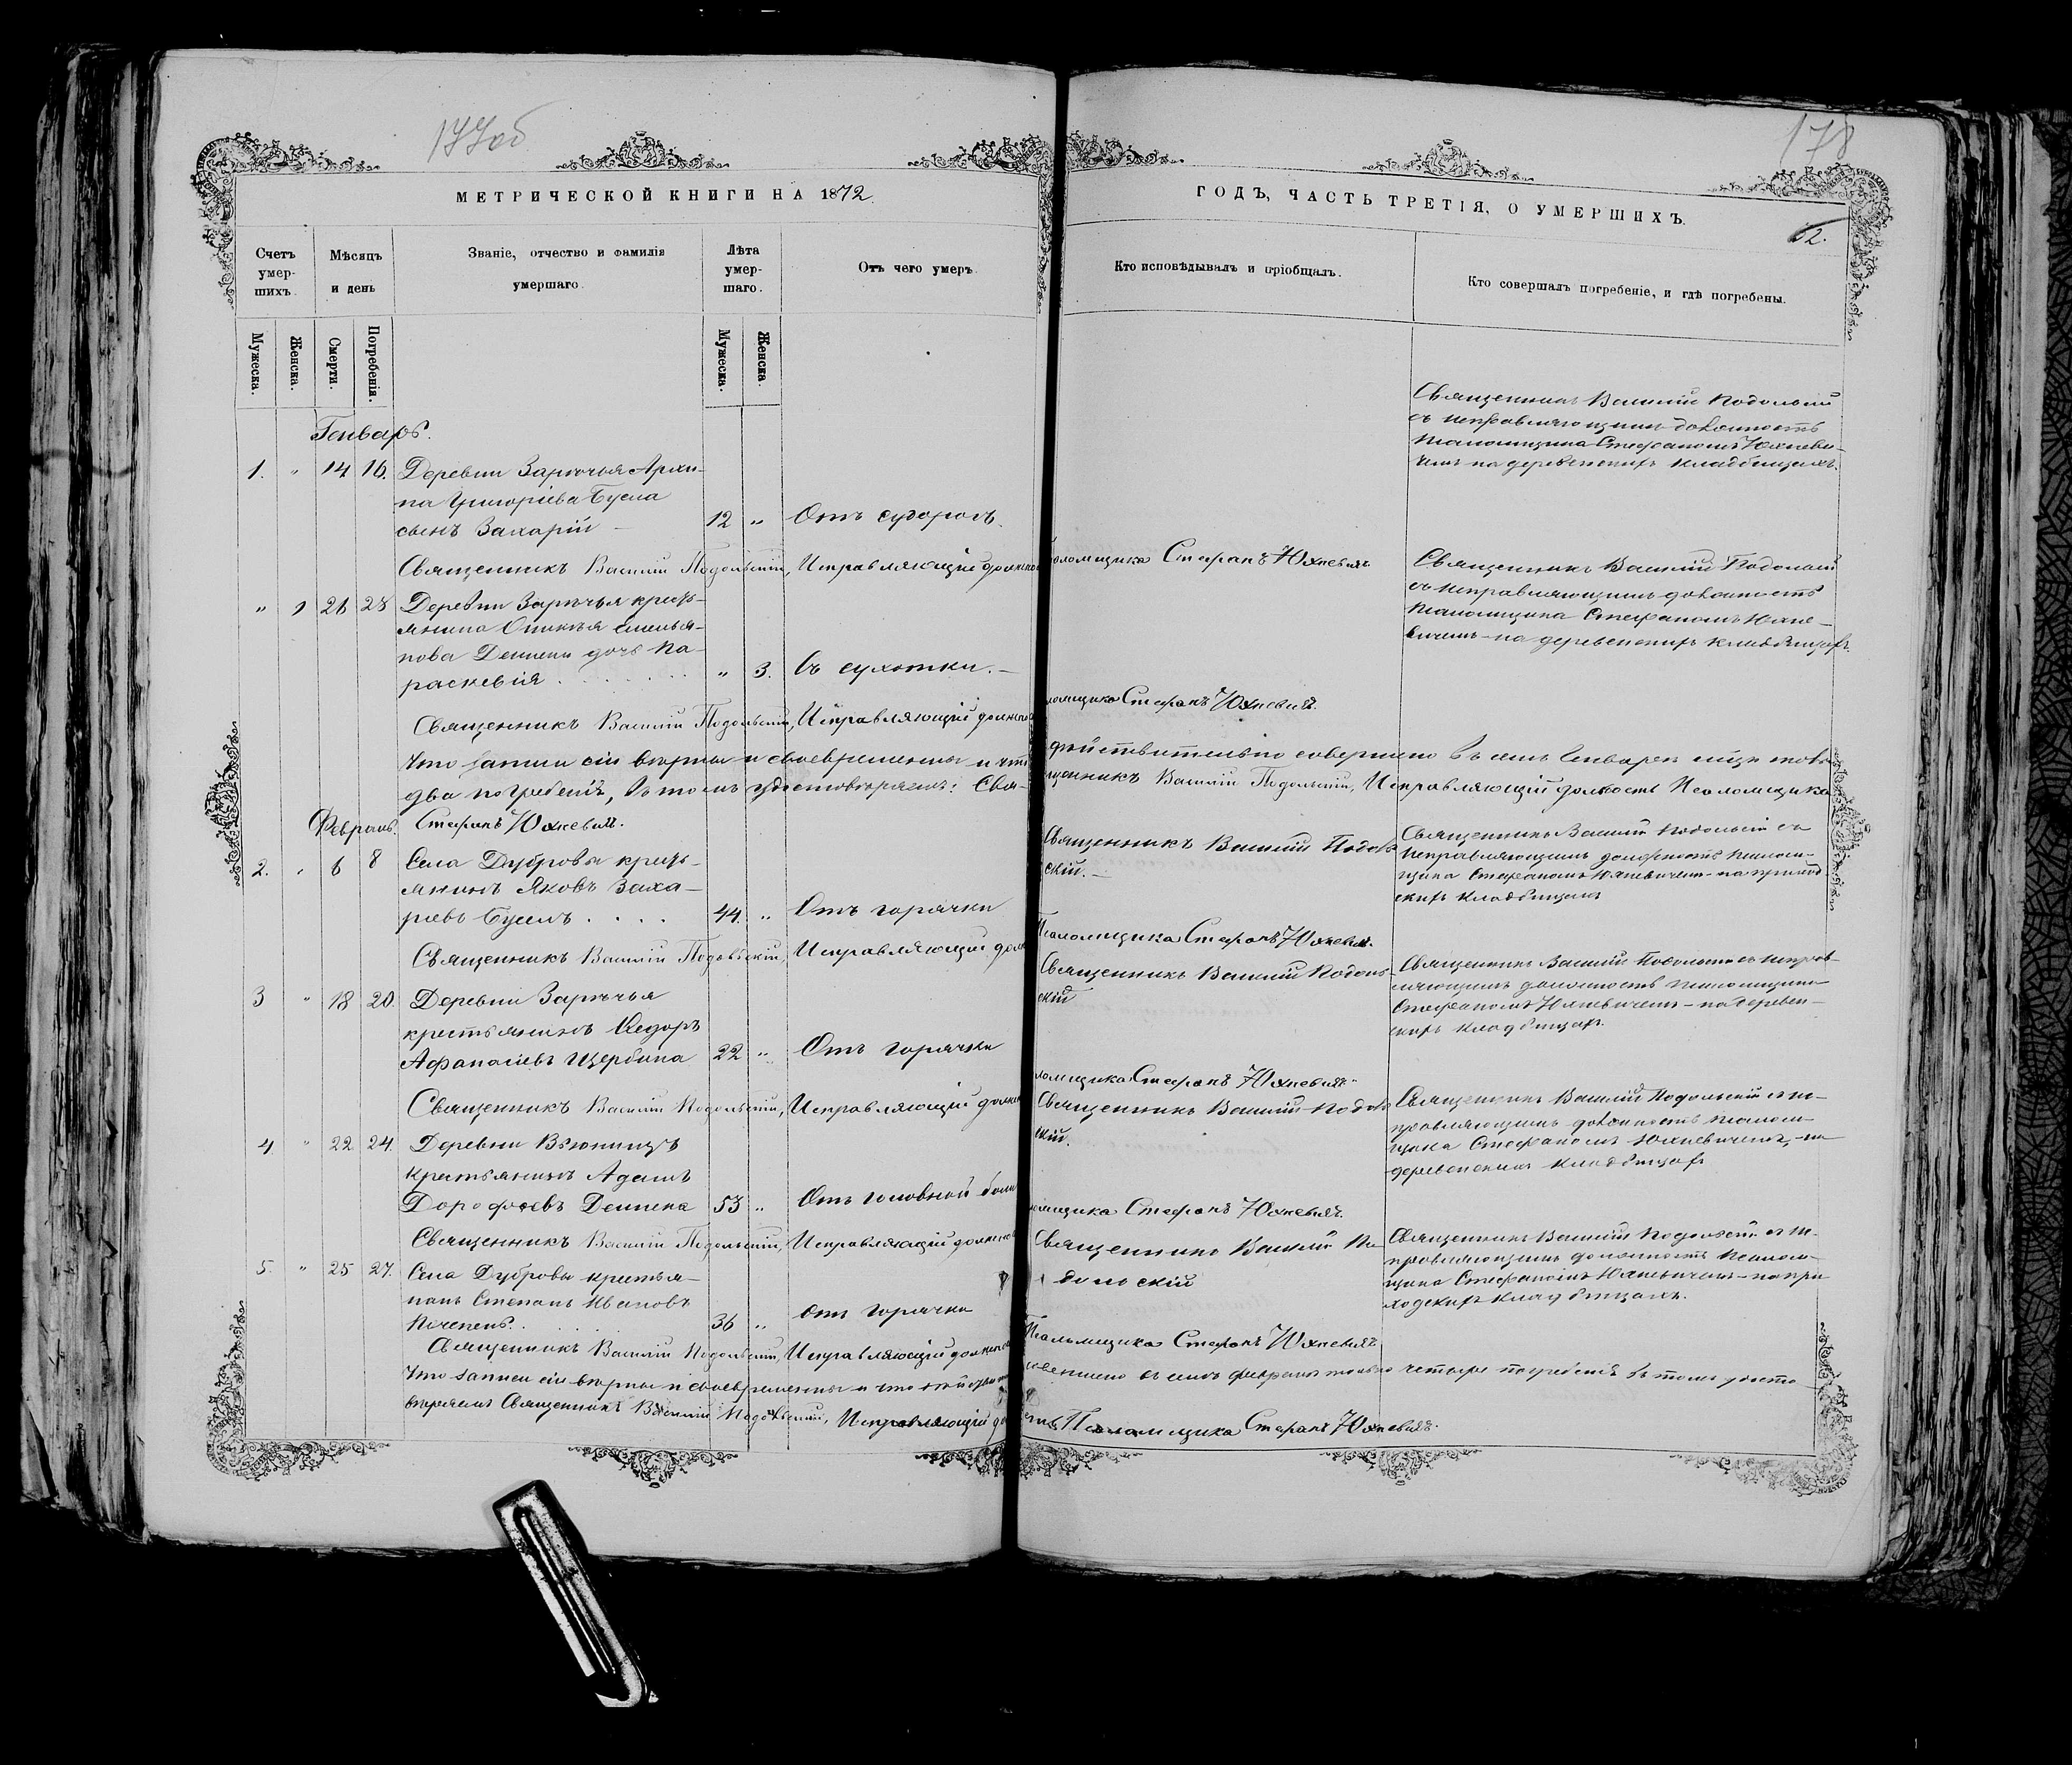 177об
178
МЕТРИЧЕСКОЙ КНИГИ НА 1872.
ГОДЪ, ЧАСТЬ ТРЕТІЯ, О УМЕРШИХЪ.
62.
Счетъ умер-шихъ.
Мѣсяцъ и день
Званіе, отчество и фамилія умершаго.
Лѣта умер-шаго.
Отъ чего умеръ.
Кто исповѣдывалъ и пріобщалъ.
Кто совершалъ погребеніе, и гдѣ погребены.
Мужеска.
Женска.
Смерти.
Погребенія.
Мужеска.
Женска.
Генварь.
1. " 14 16. Деревни Зарѣчья Архи-
па Григоріева Бусла
сынъ Захарій – 12 " Отъ судорогъ.
Священникъ Василій Подольскій
съ исправляющимъ должность
Псаломщика Стефаномъ Юхневи-
чемъ на деревенскихъ кладбищахъ.
Священникъ Василій Подольскій, Исправляющій должность Псаломщика Стефанъ Юхневичъ
" 1 26 28 Деревни Зарѣчья кресть-
янина
нова Демени дочь Па-
раскевія . . . . . . " 3. Съ сухотки. –
Священникъ Василій Подольскій
съ исправляющимъ должность
Псаломщика Стефаномъ Юхне-
вичемъ – на деревенскихъ кладбищахъ.
Священникъ Василій Подольскій, Исправляющій должность Псаломщика Стефанъ Юхневичъ.
Что записи сіи вѣрны и своевременны и что дѣйствительно совершено въ семъ Генварѣ м͠цѣ только
два погребенія, въ томъ удостовѣряемъ: Свя-щенникъ Василій Подольскій, Исправляющій должность Псаломщика
Стефанъ Юхневичъ.
Февраль.
2. " 6 8 Села Дубровы кресть-
янинъ Яковъ Заха-
ріевъ Буселъ . . . . 44. " Отъ горячки
Священникъ Василій Подоль-
скій. –
Священникъ Василій Подольскій съ
исправляющимъ должность Псалом-
щика Стефаномъ Юхневичемъ – на приход
скихъ кладбищахъ
Священникъ Василій Подольскій, Исправляющій должность Псаломщика Стефанъ Юхневичъ.
3 " 18 20 Деревни Зарѣчья
крестьянинъ Ѳедоръ
Афанасіевъ Щербина 22 " Отъ горячки
Священникъ Василій Подоль-
скій
Священникъ Василій Подольскій съ исправ-
ляющимъ должность псаломщика
Стефаномъ Юхневичемъ – на деревен-
скихъ кладбищахъ.
Священникъ Василій Подольскій, Исправляющій должность Псаломщика Стефанъ Юхневичъ.
4 " 22 24. Деревни
крестьянинъ Адамъ
Дорофеевъ Демена 53 " Отъ головной боли
Священникъ Василій Подоль
скій.
Священникъ Василій Подольскій съ ис-
правляющимъ должность Псалом-
щика Стефаномъ Юхневичемъ, – на
деревенскихъ кладбищахъ
Священникъ Василій Подольскій, Исправляющій должность Псаломщика Стефанъ Юхневичъ.
5. " 25 27. Села Дубровы крестья-
нинъ Степанъ Ивановъ
36 " Отъ горячки
Священникъ Василій По
дольскій
Священникъ Василій Подольскій съ ис-
правляющимъ должность Псалом-
щика Стефаномъ Юхневичемъ – на при
ходскихъ кладбищахъ.
Священникъ Василій Подольскій, Исправляющій должность Псаломщика Стефанъ Юхневичъ
Что записи сіи вѣрны и своевременны и что совершено въ семъ февралѣ только четыре погребенія въ томъ удосто-
вѣряемъ Священникъ Василій Подольскій, Исправляющій должность Псаломщика Стефанъ Юхневичъ.